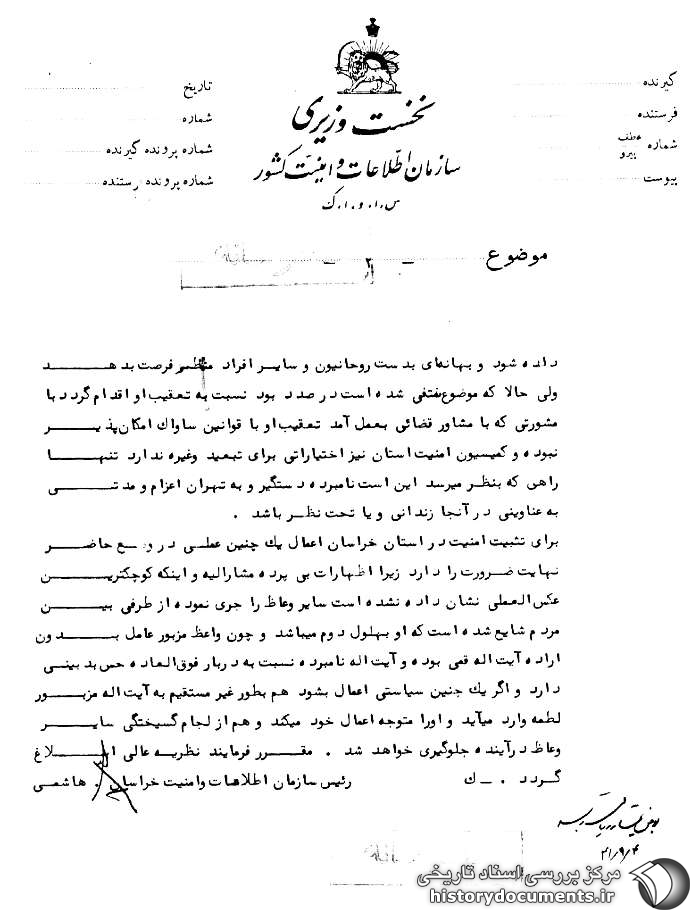 گیرنده
فرستنده
شماره عطف پیرو
پیوست
تاریخ
شماره
شماره پرونده گیرنده
شماره پرونده رستنده
نخست وزیری
سازمان اطلاعات و امنیت کشور
س.ا.و.ا.ک
موضوع
- ۲ -
داده شود و بهانه‌ای بدست روحانیون و سایر افراد فرصت بدهد
ولی حالا که موضوع منتفی شده است در صدد بود نسبت به تعقیب او اقدام گردد با
مشورتی که با مشاور قضائی بعمل آمد تعقیب او با قوانین ساواک امکان‌پذیر
نبوده و کمیسیون امنیت استان نیز اختیاراتی برای تبعید وغیره ندارد تنها
راهی که بنظر میرسد این است نامبرده دستگیر و به تهران اعزام و مدتی
به عناوینی در آنجا زندانی و یا تحت نظر باشد .
برای تثبیت امنیت در استان خراسان اعمال یک چنین عملی در وضع حاضر
نهایت ضرورت را دارد زیرا اظهارات بی پرده مشارالیه و اینکه کوچکترین
عکس‌العملی نشان داده نشده است سایر وعاظ را جری نموده از طرفی بین
مردم شایع شده است که او بهلول دوم میباشد و چون واعظ مزبور عامل بدون
اراده آیت اله قمی بوده و آیت اله نامبرده نسبت به دربار فوق‌العاده حس بدبینی
دارد و اگر یک چنین سیاستی اعمال بشود هم بطور غیر مستقیم به آیت اله مزبور
لطمه وارد میآید و اورا متوجه اعمال خود میکند و هم از لجام گسیختگی سایر
وعاظ درآینده جلوگیری خواهد شد . مقرر فرمایند نظریه عالی ابلاغ
گردد . ـ ک رئیس سازمان اطلاعات وامنیت خراسان . هاشمی
۴۱/۹/۴
مرکز بررسی اسناد تاریخی
historydocuments.ir